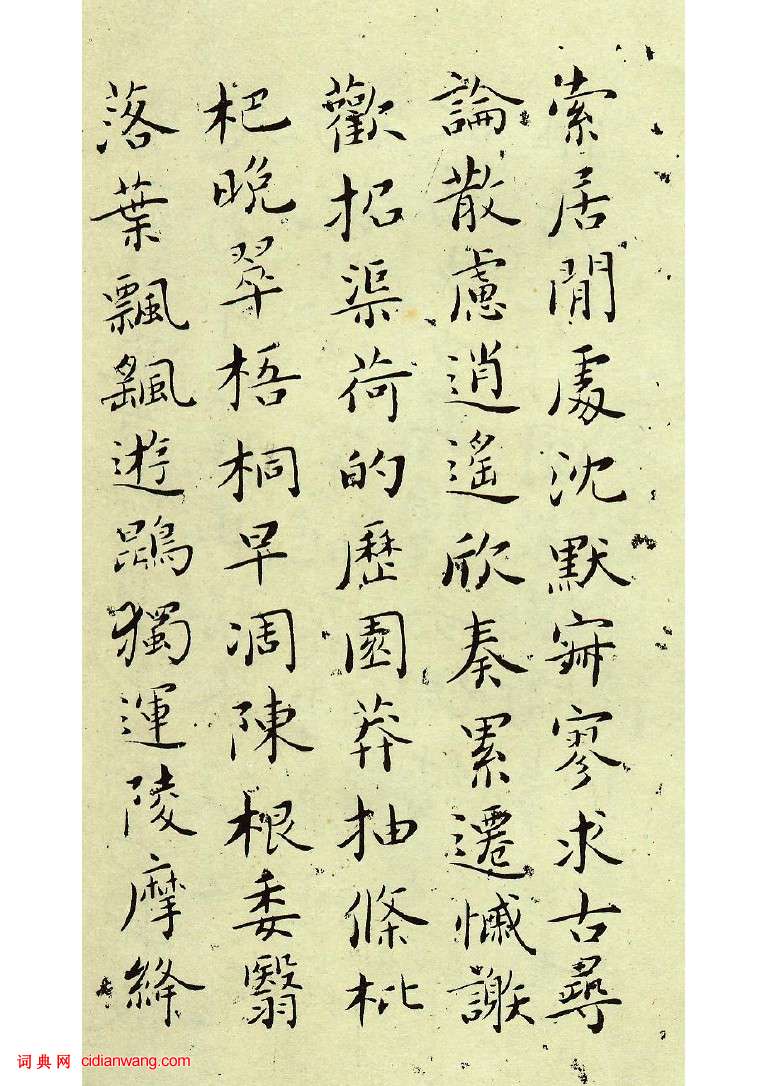 索居閒處沈默寂寥求古尋
論散慮逍遙欣奏累遷慽謝
歡招渠荷的歷園莽抽條枇
杷晚翠梧桐早凋陳根委翳
落葉飄颻遊鵾獨運陵摩絳
词典网 cidianwang.com